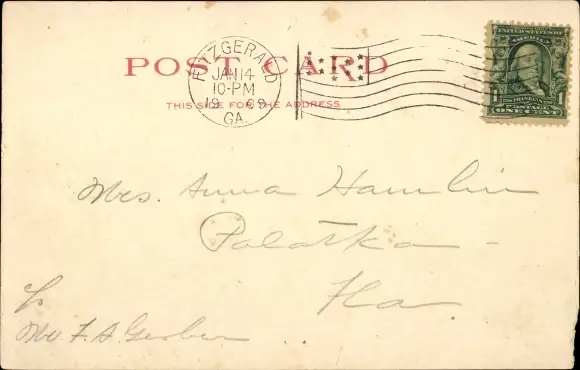 POST CARD
FITZGERALD
JAN 14
10-PM
19 09
GA.
THIS SIDE FOR THE ADDRESS
UNITED STATES OF
AMERICA
1 1
FRANKLIN
POSTAGE
ONE CENT
Mrs. Anna Hamlin
Palatka -
Fla.
Mr. F. A. Gerber